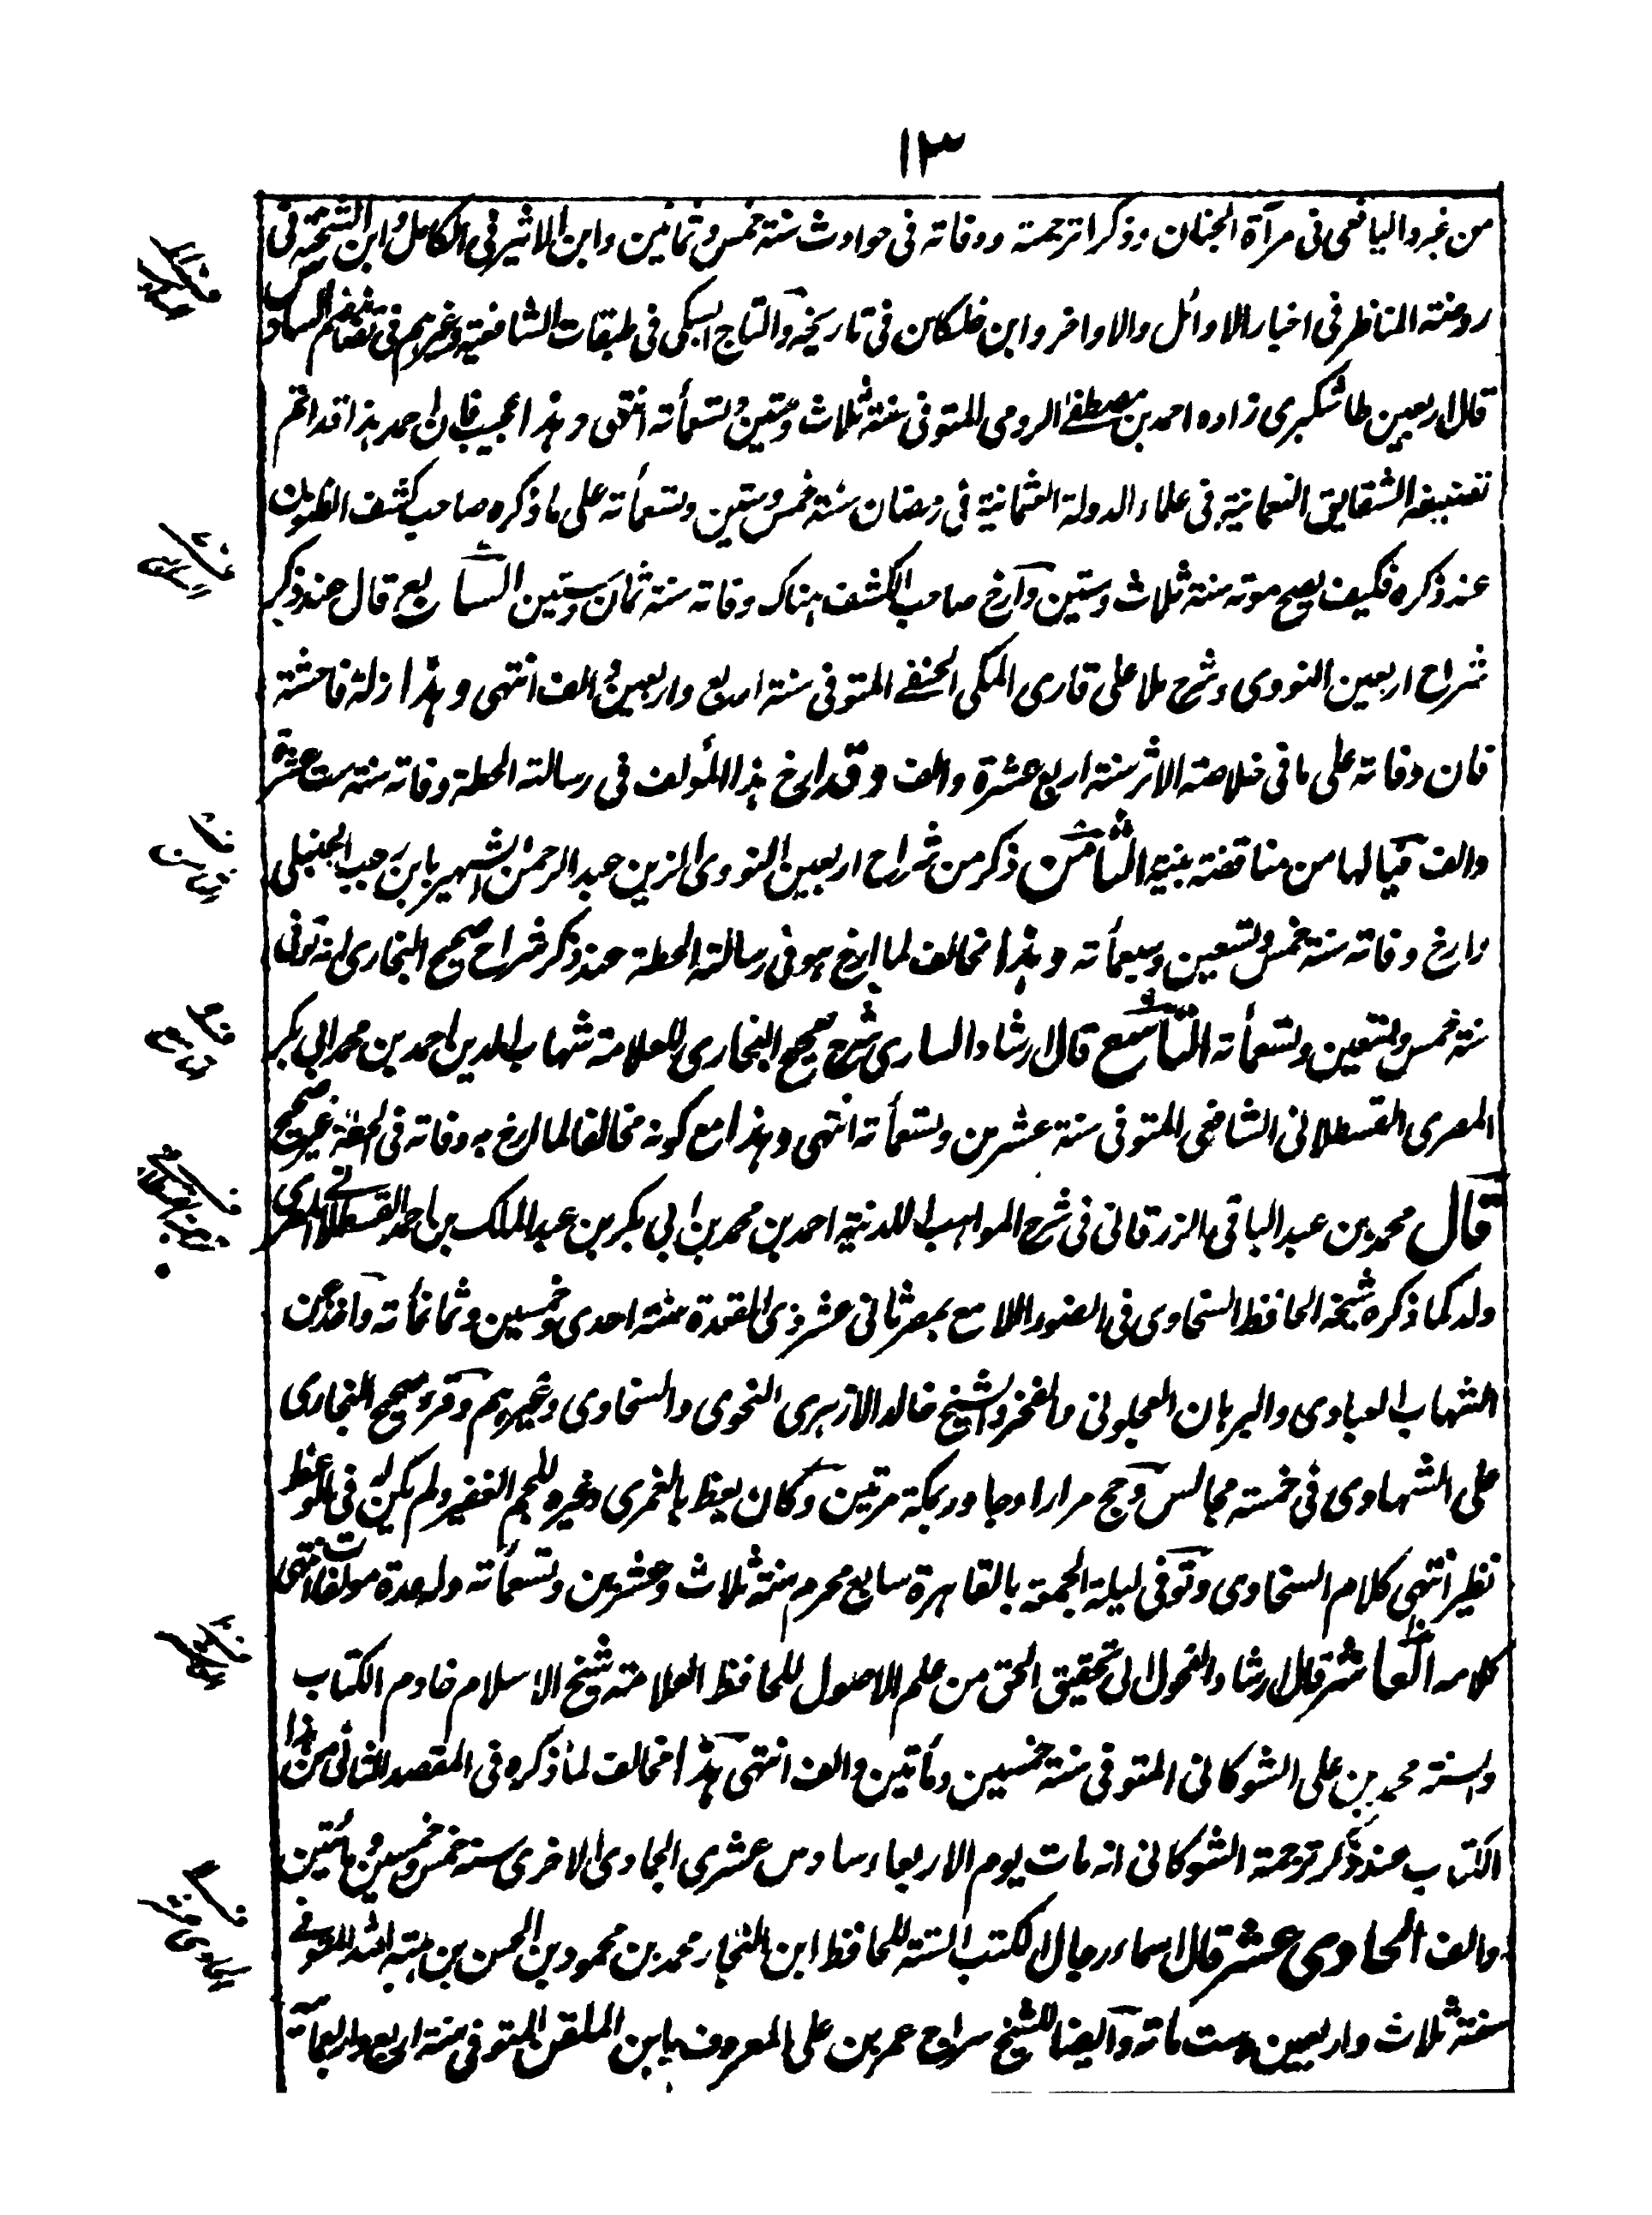 ١٣
من غبر واليافعى فى مرآة الجنان وذكرا ترجمة ووفاته فى حوادث سنة خمس وثمانين وابن الاثير فى الكامل وابن الشحنة فى
روضة المناظر فى اخبار الاوائل والاواخر وابن خلكان فى تاريخه والتاج السبكى فى طبقات الشافعية وغيرهم فى تصانيفهم السادس
قال اربعين طاشكبرى زاده احمد بن مصطفے الرومى المتوفى سنة ثلاث وستين وتسعمأته انتهى وهذا عجيب فان احمد هذا قد اتم
تصنيفه الشقايق النعمانية فى علماء الدولة العثمانية فى رمضان سنة خمس وستين وتسعمأته على ما ذكره صاحب كشف الظنون
عند ذكره فكيف يصح موته سنة ثلاث وستين وآرخ صاحب الكشف هناك وفاته سنة ثمان وستين السابع قال عند ذكر
شراح اربعين النووى وشرح ملا على قارى المكى الحنفے المتوفى سنة اربع واربعين والف انتهى وهذا زلة فاحشة
فان وفاته على ما فى خلاصة الاثر سنة اربع عشرة والف وقد ارخ هذا المؤلف فى رسالته الحطة وفاته سنة ست عشرة
والف فيا لها من مناقضة بينة الثامن ذكر من شراح اربعين النووى الزين عبد الرحمن الشهير بابن رجب الحنبلى
وارخ وفاته سنة خمس وتسعين وسبعمأته وهذا مخالف لما ارخ هو فى رسالته الحطة عند ذكر شراح صحيح البخارى انه توفى
سنة خمس وتسعين وتسعمأته التاسع قال ارشاد السارى شرح صحيح البخارى للعلامة شهاب الدين احمد بن محمد ابى بكر
المصرى القسطلانى الشافعى المتوفى سنة عشرين وتسعمأته انتهى وهذا مع كونه مخالفا لما ارخ به وفاته فى الحطة غير صحيح
قال محمد بن عبد الباقى الزرقانى فى شرح المواهب اللدنية احمد بن محمد بن ابى بكر بن عبد الملك بن احمد القسطلانے المصرى
ولد كما ذكره شيخه الحافظ السخاوى فى الضوء اللامع بمصر ثانى عشر ذى القعدة سنة احدى وخمسين وثمانمأته واخذ عن
الشهاب العبادى والبرهان العجلونى والفخر والشيخ خالد الازهرى النحوى والسخاوى وغيرهم وقرء صحيح البخارى
على الشهاوى فى خمسة مجالس وحج مرارا وجاور بمكة مرتين وكان يعظ بالغمرى وغيره للجم الغفير ولم يكن له فى الوعظ
نظير انتهى كلام السخاوى وتوفى ليلة الجمعة بالقاهرة سابع محرم سنة ثلاث وعشرين وتسعمأته وله عدة مولفات انتهى
كلامه العاشر قال ارشاد الفحول الى تحقيق الحق من علم الاصول للحافظ العلامة شيخ الاسلام خادم الكتاب
والسنة محمد بن على الشوكانى المتوفى سنة خمسين ومأتين والف انتهى هذا مخالف لما ذكره فى المقصد الثانى من هذا
الكتاب عند ذكر ترجمة الشوكانى انه مات يوم الاربعاء سادس عشرى الجمادى الاخرى سنة خمس وخمسين ومأتين
والف الحادى عشر قال اسماء رجال الكتب الستة للحافظ ابن النجار محمد بن محمود بن الحسن بن هبة الله المتوفے
سنة ثلاث واربعين وست مأته وايضا للشيخ سراج عمر بن على المعروف بابن الملقن المتوفى سنة اربع واربعمأية